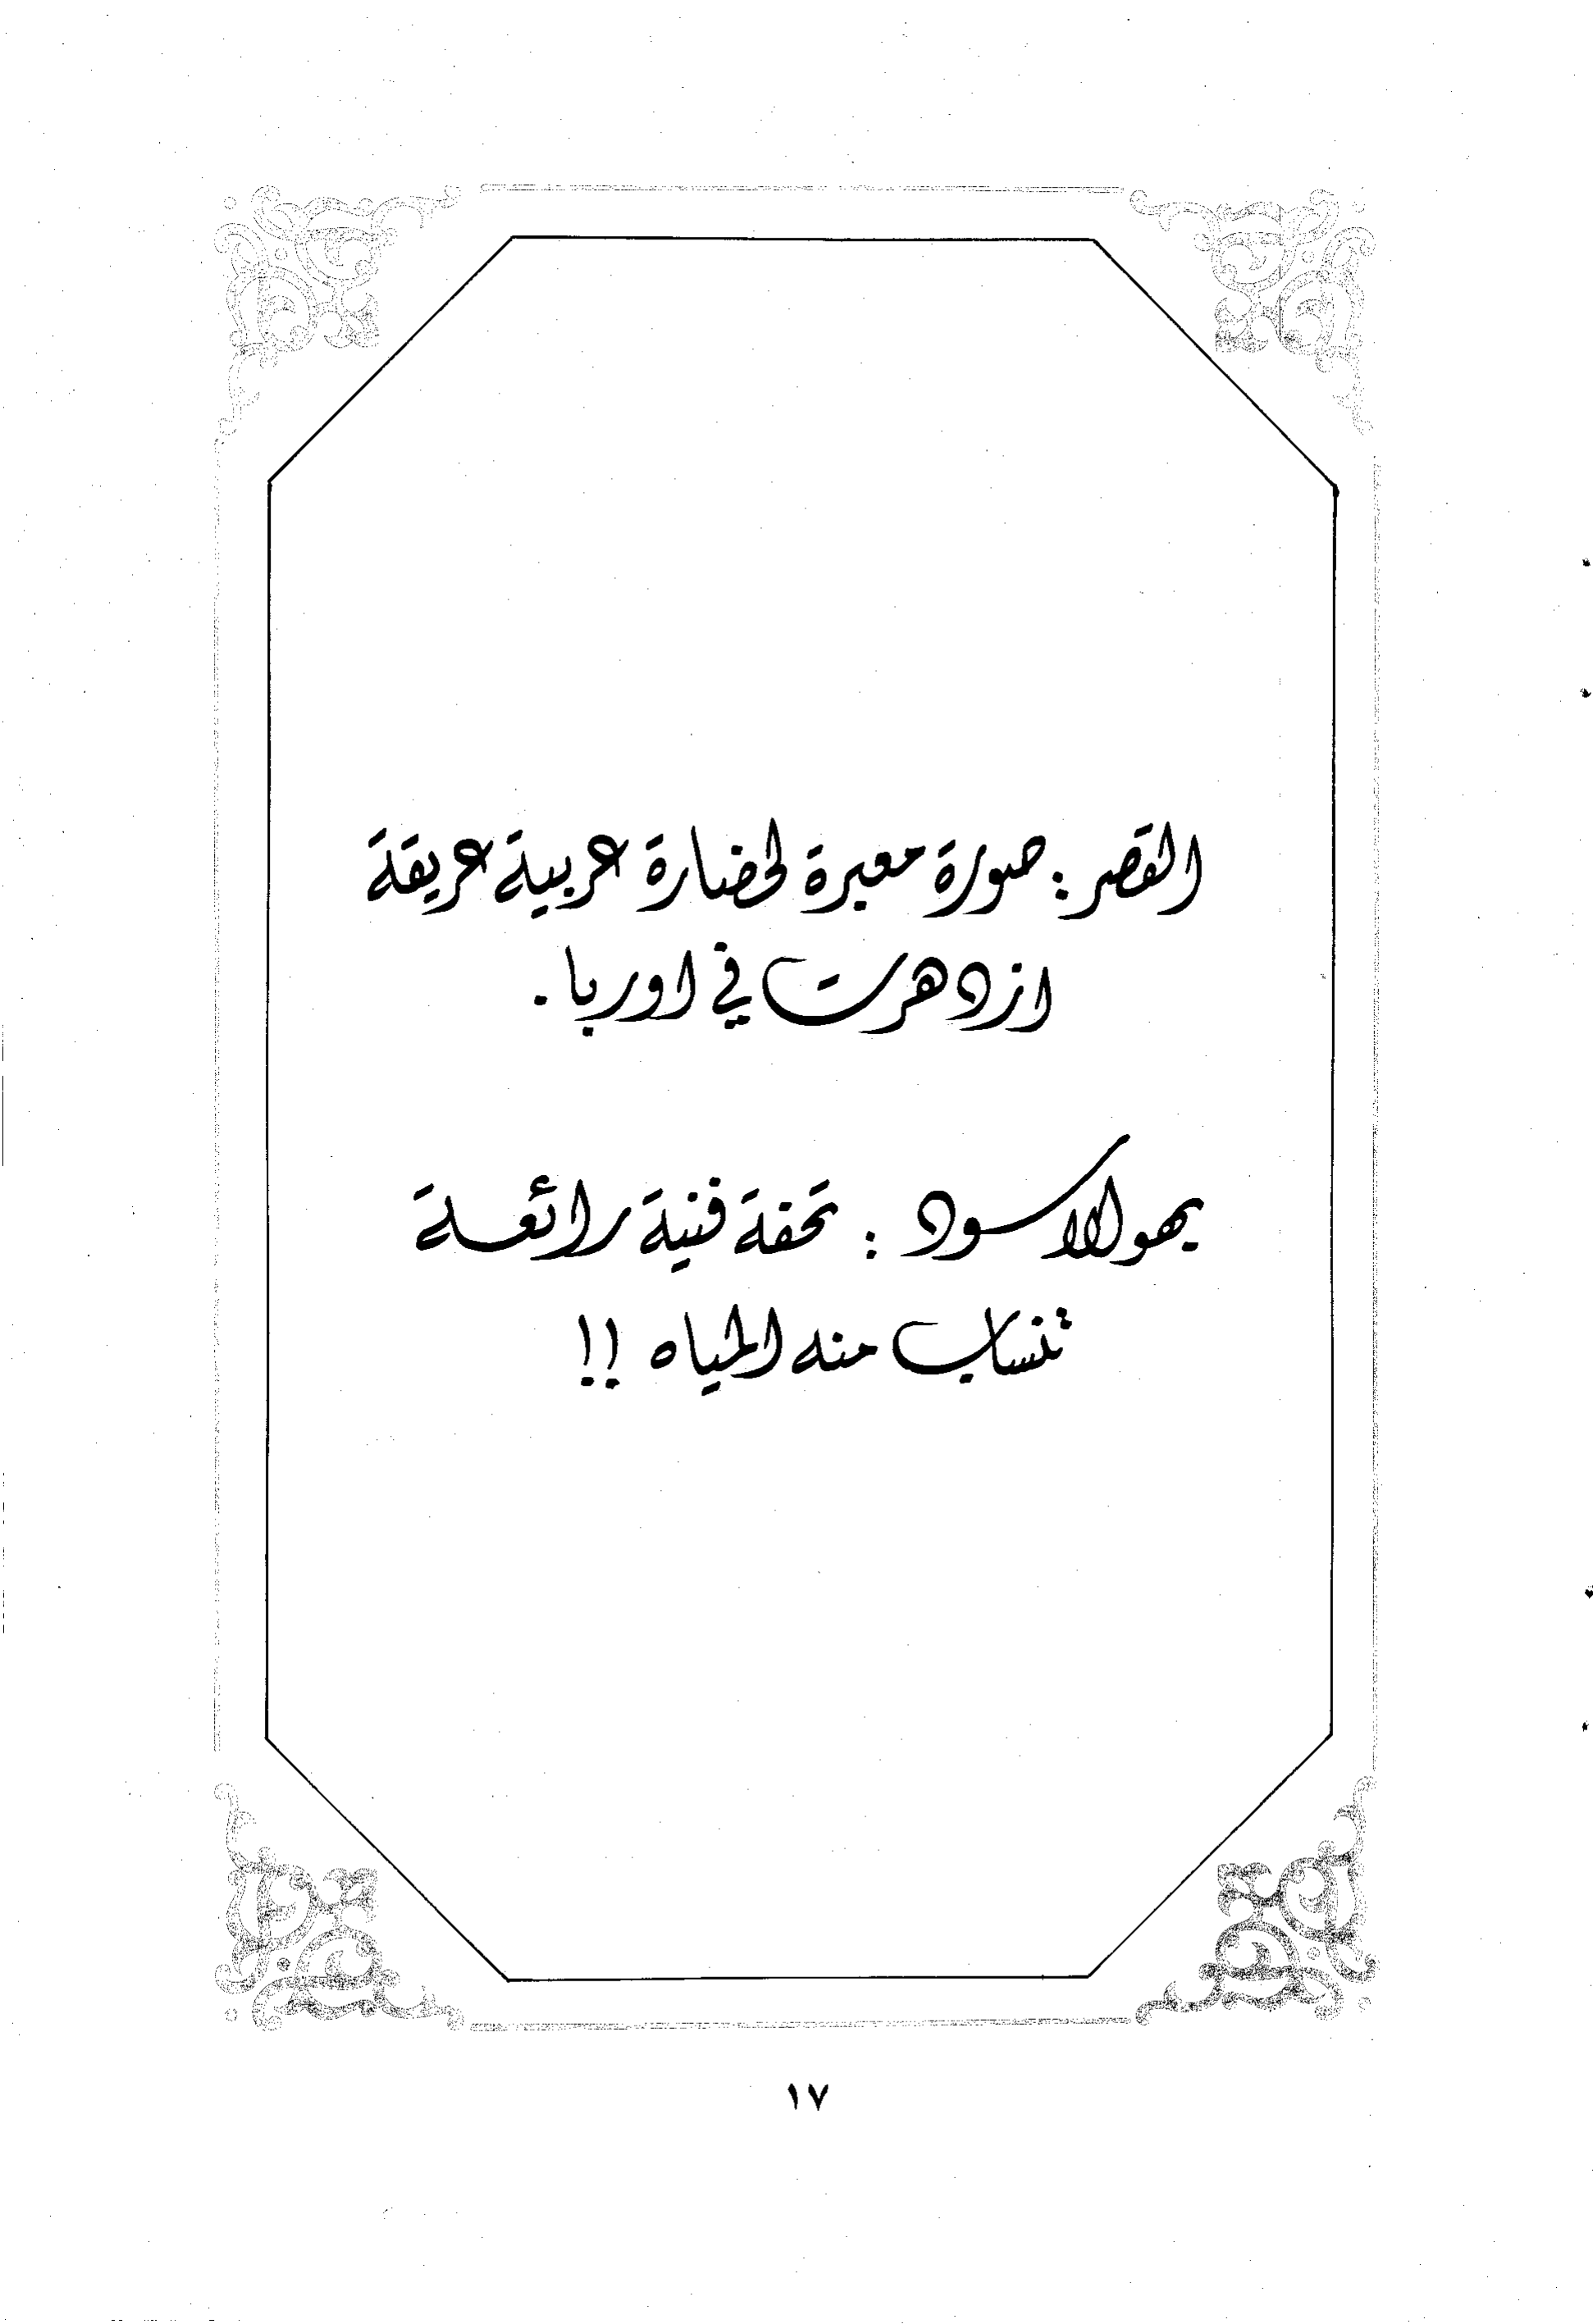 القصر : صورة معبرة لحضارة عربية عريقة
ازدهرت في اوربا .
بهو الاسود : تحفة فنية رائعة
تنساب منه المياه !!
١٧